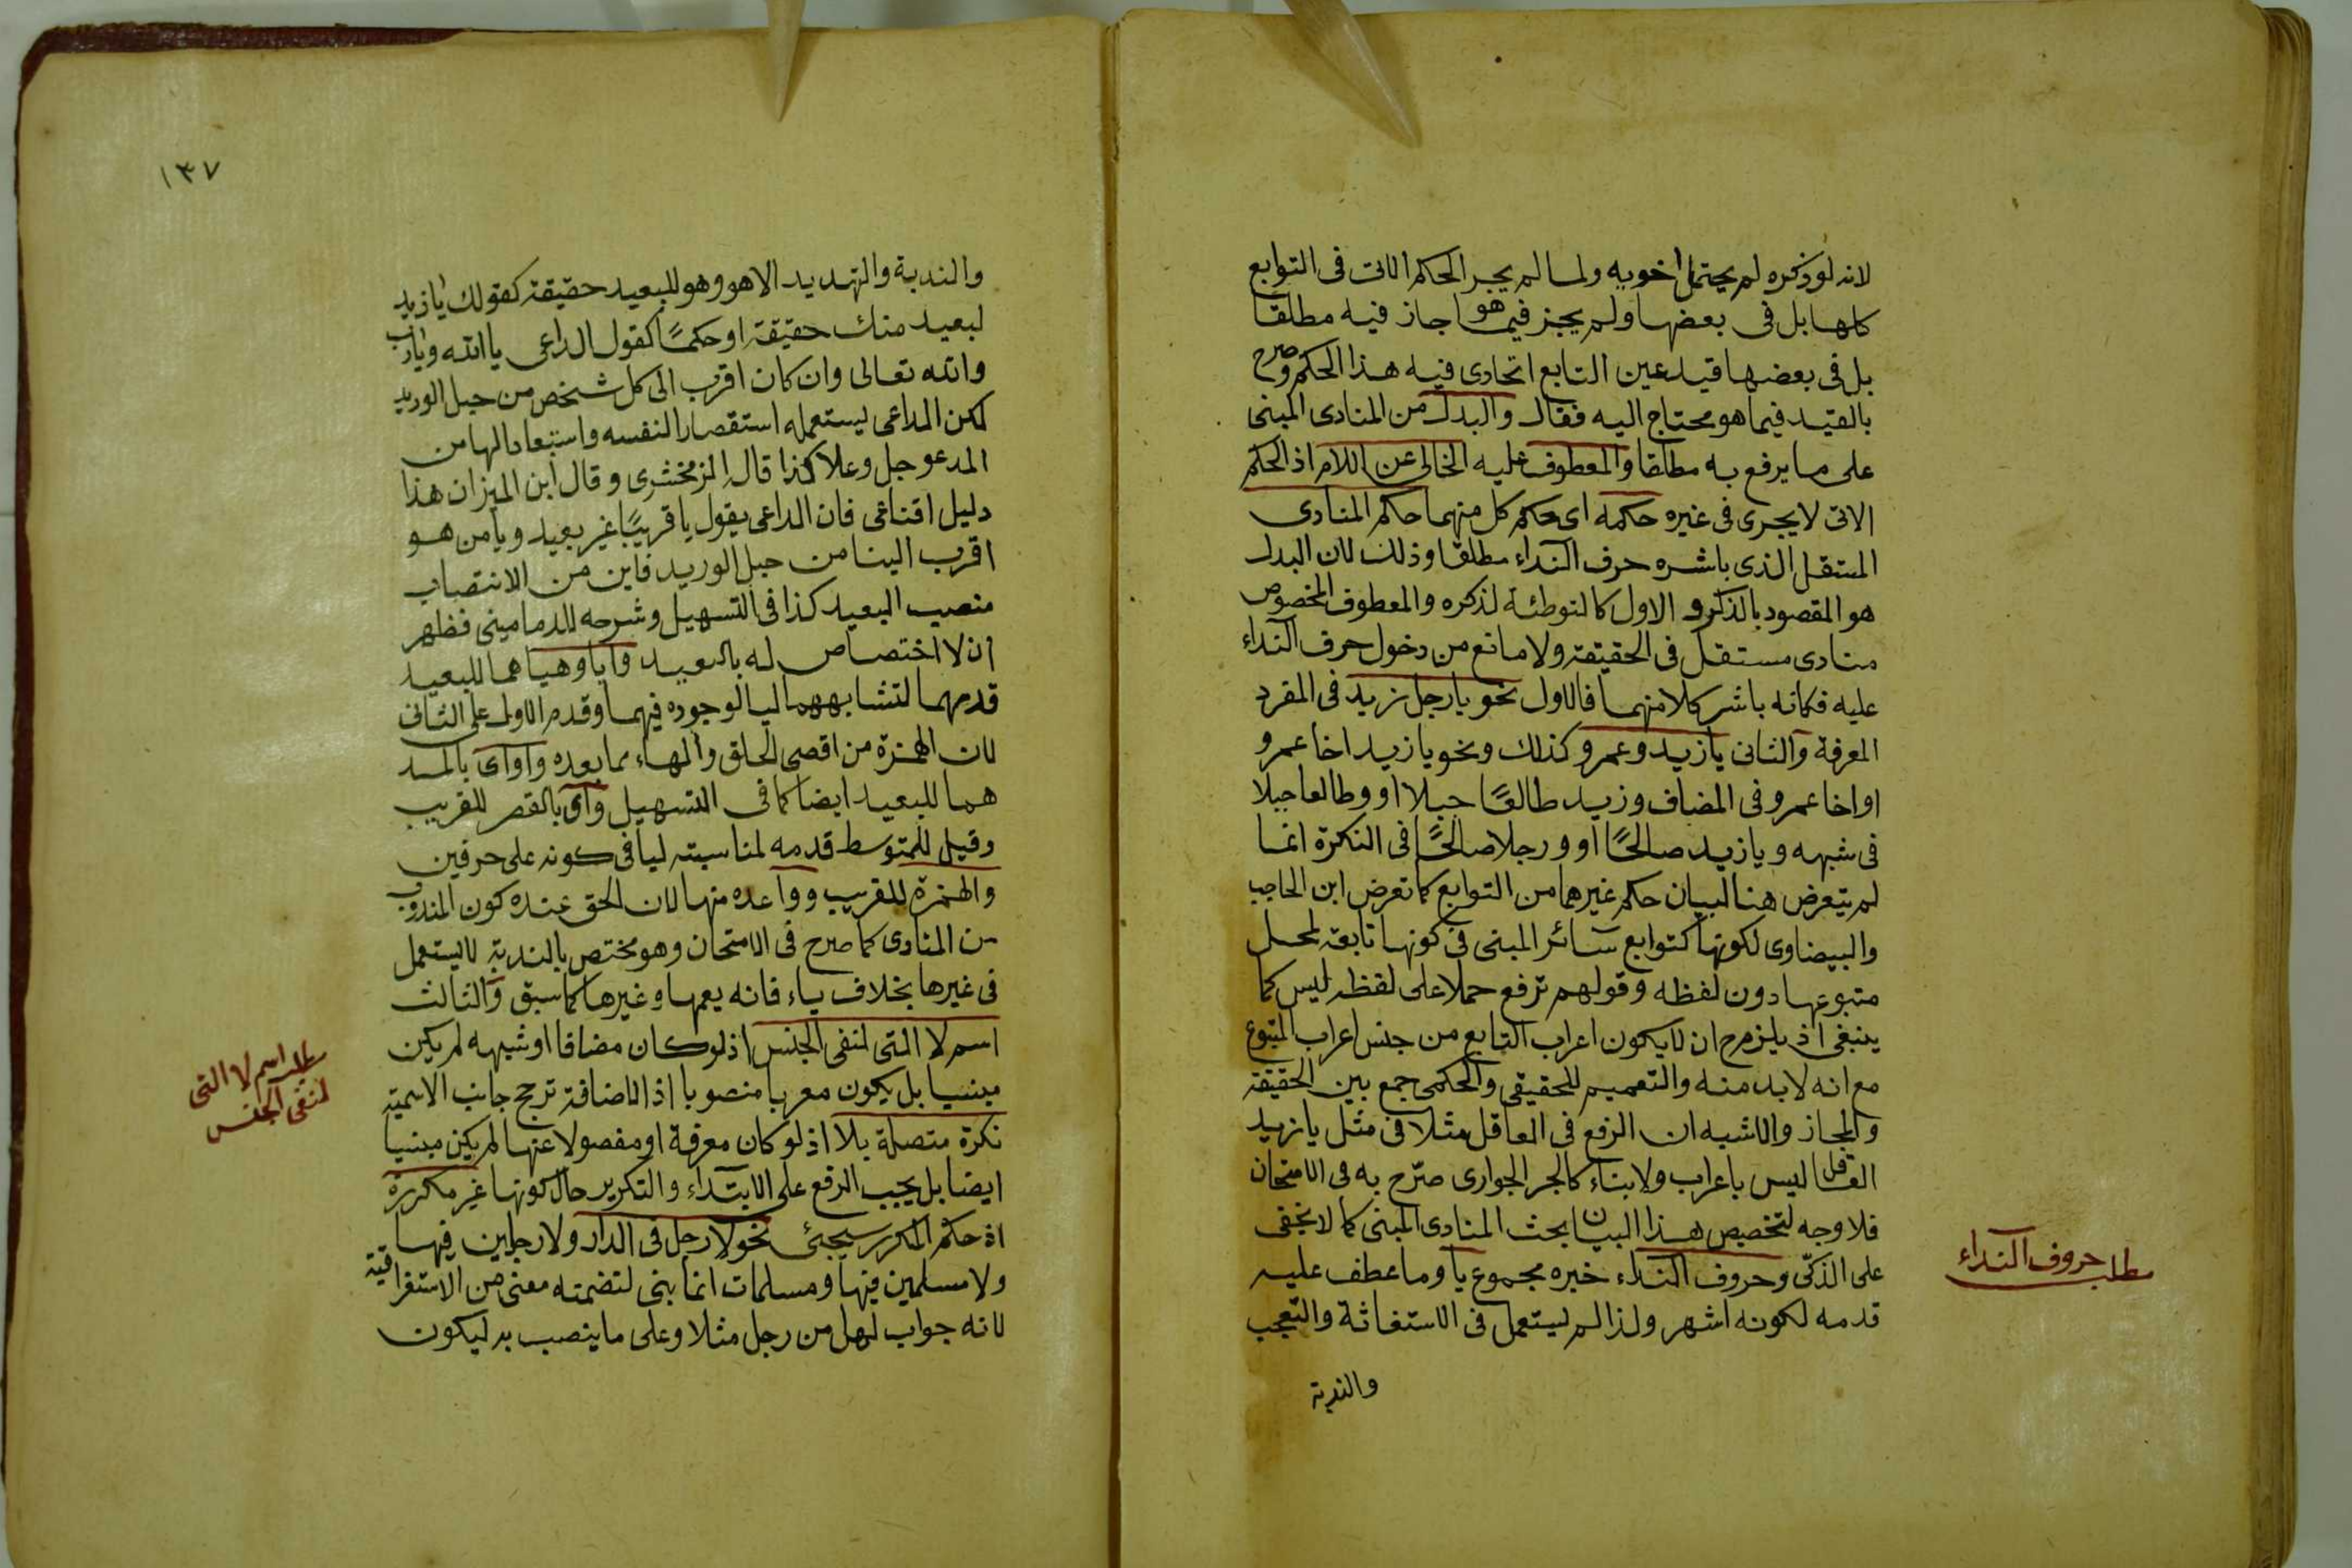 لانه لو ذكره لم يحتمل اخويه ولما لم يجر الحكم الاتى فى التوابع
كلها بل فى بعضها ولم يجز فيما هو جاز فيه مطلقا
بل فى بعضها قيد عين التابع اتحادى فيه هذا الحكم وصرح
بالقيد فيما هو محتاج اليه فقال والبدل من المنادى المبنى
على ما يرفع به مطلقا والمعطوف عليه الخالى عن اللام اذ الحكم
الاتى لا يجرى فى غيره حكمه اى حكم كل منهما حكم المنادى
المستقل الذى باشره حرف النداء مطلقا وذلك لان البدل
هو المقصود بالذكر و الاول كالتوطئة لذكره والمعطوف المخصوص
منادى مستقل فى الحقيقة ولا مانع من دخول حرف النداء
عليه فكانه باشر كلا منهما فالاول نحو يا رجل زيد فى المفرد
المعرفة والثانى يا زيد وعمرو كذلك ونحو يا زيد اخا عمرو
او اخا عمرو فى المضاف وزيد طالعًا جبلا او وطالعا جبلا
فى شبهه ويا زيد صالحًا او ورجلا صالحًا فى النكرة انما
لم يتعرض هنا لبيان حكم غيرهما من التوابع كما تعرض ابن الحاجب
والبيضاوى لكونها كتوابع سائر المبنى فى كونها تابعة لمحل
متبوعها دون لفظه وقولهم ترفع حملا على لفظه ليس كما
ينبغى اذ يلزم ح ان لا يكون اعراب التابع من جنس اعراب المتبوع
مع انه لا بد منه والتعميم للحقيقى والحكمى جمع بين الحقيقة
والمجاز والاشبه ان الرفع فى العاقل مثلا فى مثل يا زيد
العاقل ليس باعراب ولا بناء كالجر الجوارى صرّح به فى الامتحان
فلا وجه لتخصيص هذا البيان ببحث المنادى المبنى كما لا يخفى
على الذكىّ وحروف النداء خبره مجموع يا وما عطف عليه
قدمه لكونه اشهر ولذا لم يستعمل فى الاستغاثة والتعجب
والندبة
مطلب حروف النداء
١٣٧
والندبة والتهديد الا هو وهو للبعيد حقيقة كقولك يا زيد
لبعيد منك حقيقة او حكمًا كقول الداعى يا الله ويا رب
والله تعالى وان كان اقرب الى كل شخص من حبل الوريد
لكن الداعى يستعمله استقصارا لنفسه واستبعادا لها من
المدعو جل وعلا كذا قال الزمخشرى وقال ابن الميزان هذا
دليل اقناعى فان الداعى يقول يا قريبًا غير بعيد ويا من هو
اقرب الينا من حبل الوريد فاين من الانتصاب
منصب البعيد كذا فى التسهيل وشرحه للدمامينى فظهر
ان لا اختصاص له بالبعيد وايا وهيا هما للبعيد
قدمهما لتشابههما ليا لوجوده فيهما وقدم الاول على الثانى
لان الهمزة من اقصى الحلق والهاء مما بعده وا واى بالمد
هما للبعيد ايضا كما فى التسهيل واى بالقصر للقريب
وقيل للمتوسط قدمه لمناسبته ليا فى كونه على حرفين
والهمزة للقريب ووا عده منها لان الحق عنده كون المندوب
من المنادى كما صرح فى الامتحان وهو مختص بالندبة لا يستعمل
فى غيرها بخلاف ياء فانه يعمها وغيرها كما سبق والثالث
اسم لا التى لنفى الجنس اذ لو كان مضافا او شبهه لم يكن
مبنيا بل يكون معربا منصوبا اذ الاضافة ترجح جانب الاسمية
نكرة متصلة بلا اذ لو كان معرفة او مفصولا عنها لم يكن مبنيا
ايضا بل يجب الرفع على الابتداء والتكرير حال كونها غير مكررة
اذ حكم المكرر سيجئ نحو لا رجل فى الدار ولا رجلين فيها
ولا مسلمين فيها ومسلمات انما بنى لتضمنه معنى من الاستغراقية
لانه جواب لهل من رجل مثلا وعلى ما ينصب به ليكون
مطلب اسم لا التى
لنفى الجنس